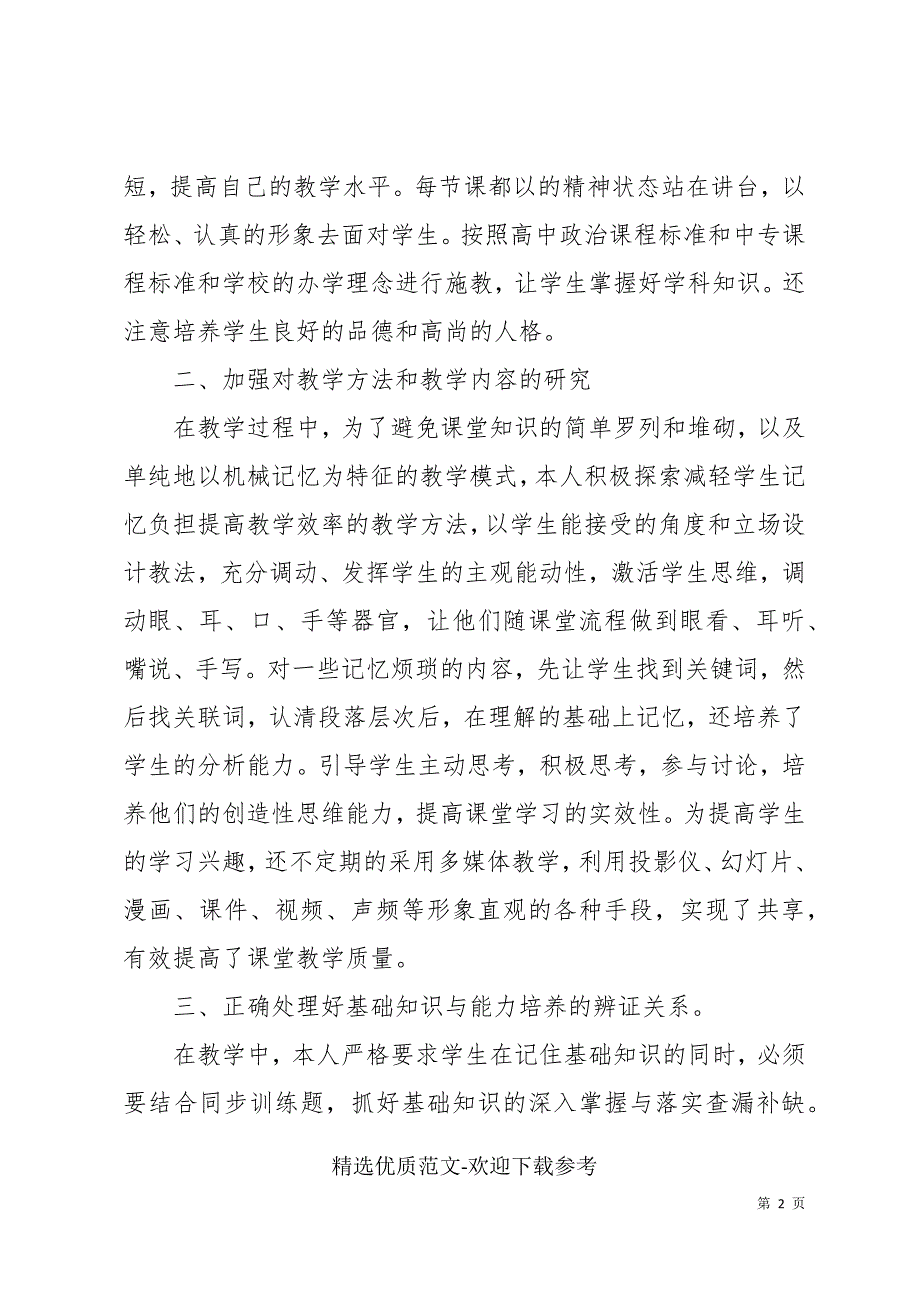 短，提高自己的教学水平。每节课都以的精神状态站在讲台，以
轻松、认真的形象去面对学生。按照高中政治课程标准和中专课
程标准和学校的办学理念进行施教，让学生掌握好学科知识。还
注意培养学生良好的品德和高尚的人格。
二、加强对教学方法和教学内容的研究
在教学过程中，为了避免课堂知识的简单罗列和堆砌，以及
单纯地以机械记忆为特征的教学模式，本人积极探索减轻学生记
忆负担提高教学效率的教学方法，以学生能接受的角度和立场设
计教法，充分调动、发挥学生的主观能动性，激活学生思维，调
动眼、耳、口、手等器官，让他们随课堂流程做到眼看、耳听、
嘴说、手写。对一些记忆烦琐的内容，先让学生找到关键词，然
后找关联词，认清段落层次后，在理解的基础上记忆，还培养了
学生的分析能力。引导学生主动思考，积极思考，参与讨论，培
养他们的创造性思维能力，提高课堂学习的实效性。为提高学生
的学习兴趣，还不定期的采用多媒体教学，利用投影仪、幻灯片、
漫画、课件、视频、声频等形象直观的各种手段，实现了共享，
有效提高了课堂教学质量。
三、正确处理好基础知识与能力培养的辨证关系。
在教学中，本人严格要求学生在记住基础知识的同时，必须
要结合同步训练题，抓好基础知识的深入掌握与落实查漏补缺。
精选优质范文-欢迎下载参考
第 2 页